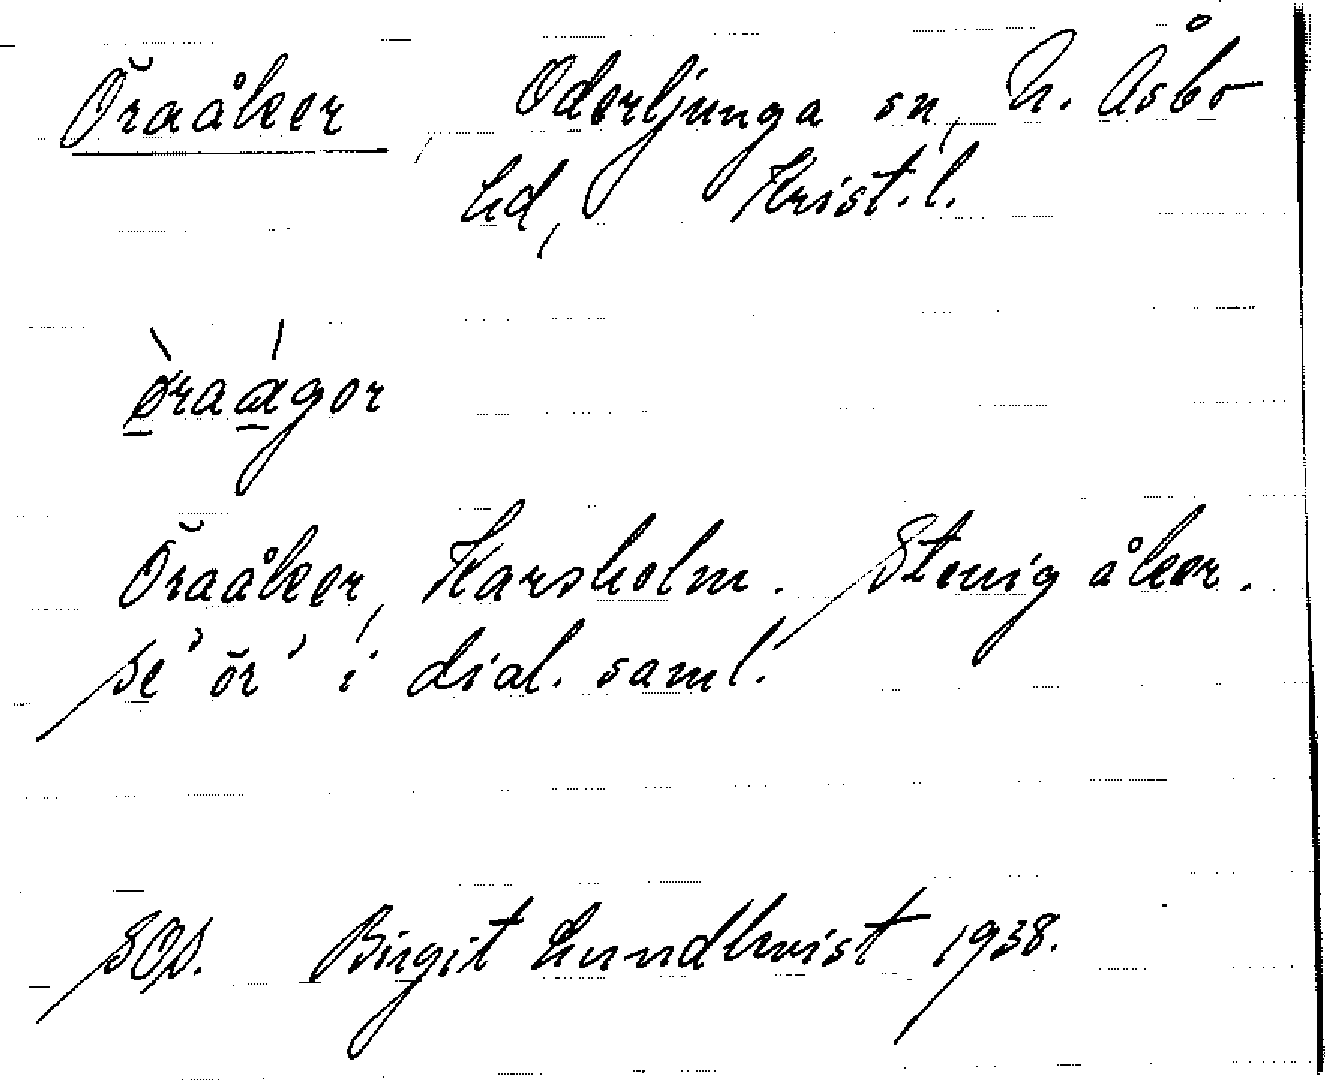 Öraåker, Oderljunga sn, N. Åsbo
hd, Krist. l.
øraågor
Öraåker, Karsholm. Stenig åker.
se 'ör' i dial. saml.
SOS. Birgit Lundkvist 1938.